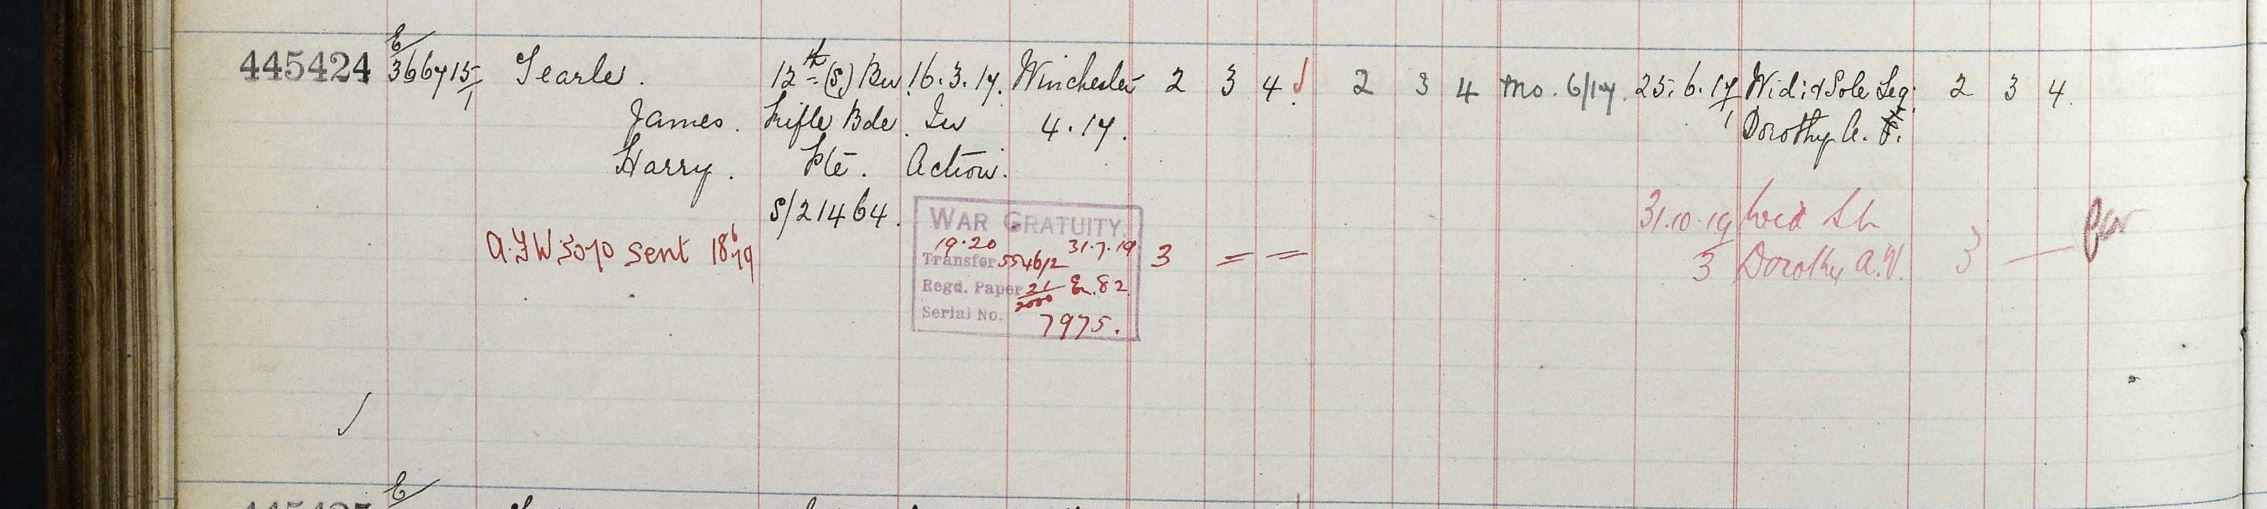 445424 E/366715/1 Searle. 12th (S) Bn 16.3.17. Winchester 2 3 4 2 3 4 Mo. 6/17. 25.6.17 Wid: & Sole Leg: 2 3 4.
James. Rifle Bde. In 4.17. 1 Dorothy A. F.
Harry. Pte. Action.
S/21464.
WAR GRATUITY.
31.10.19 Wid
A.F.W 5070 sent 18/6/19 19.20 31.7.19 3 = =
Transfer 5546/2 3 Dorothy A.V. 3 —
Regd. Paper 21/2000 E. 82
Serial No. 7975.
E/
445425